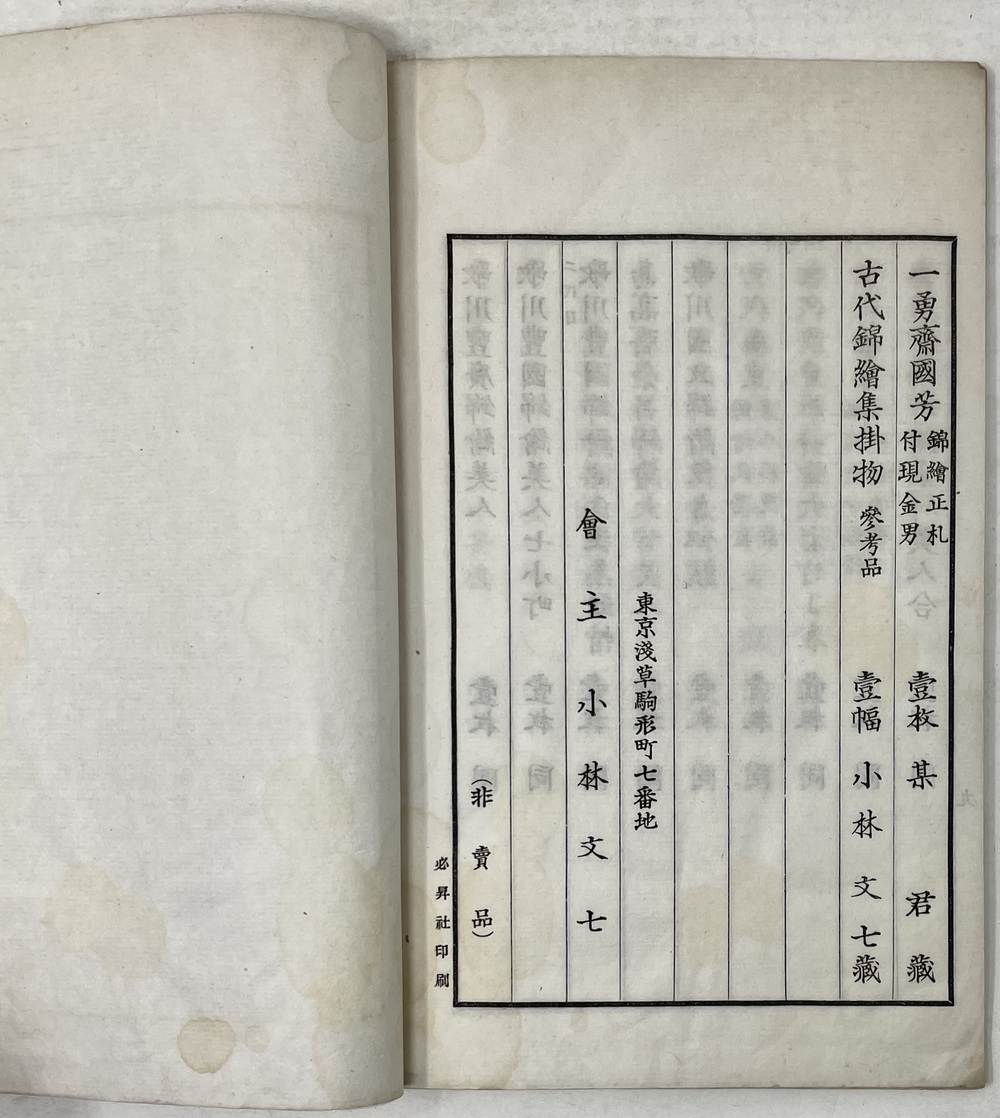 一勇齋國芳 錦繪正札付現金男 壹枚 某 君 藏
古代錦繪集掛物 參考品 壹幅 小林文七藏
東京淺草駒形町七番地
會主 小林文七
（非賣品）
必昇社印刷